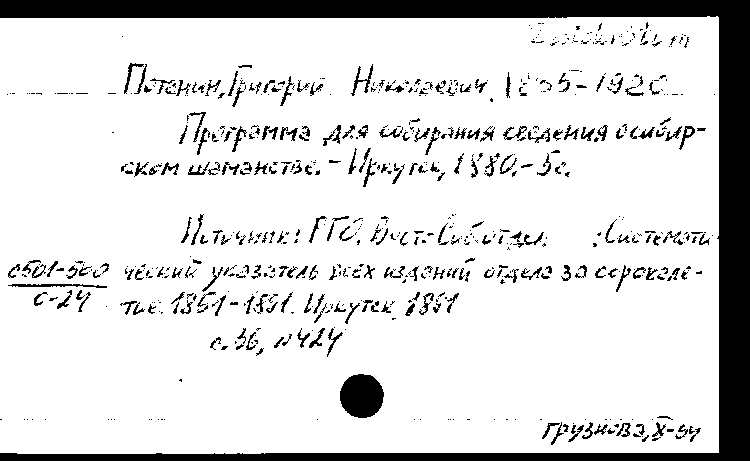 Потанин, Григорий Николаевич, 1835-1920
Программа для собирания сведения осибир-
ском шаманстве. - Иркутск, 1880. - 5с.
Источник: РГО. Вост.-Сиб. отдел. : Системати-
ческий указатель всех изданий отдела за сорокале-
тие. 1851-1891. Иркутск, 1891
с. 36, №424
с501-560
с-24
Грузнова, X-94